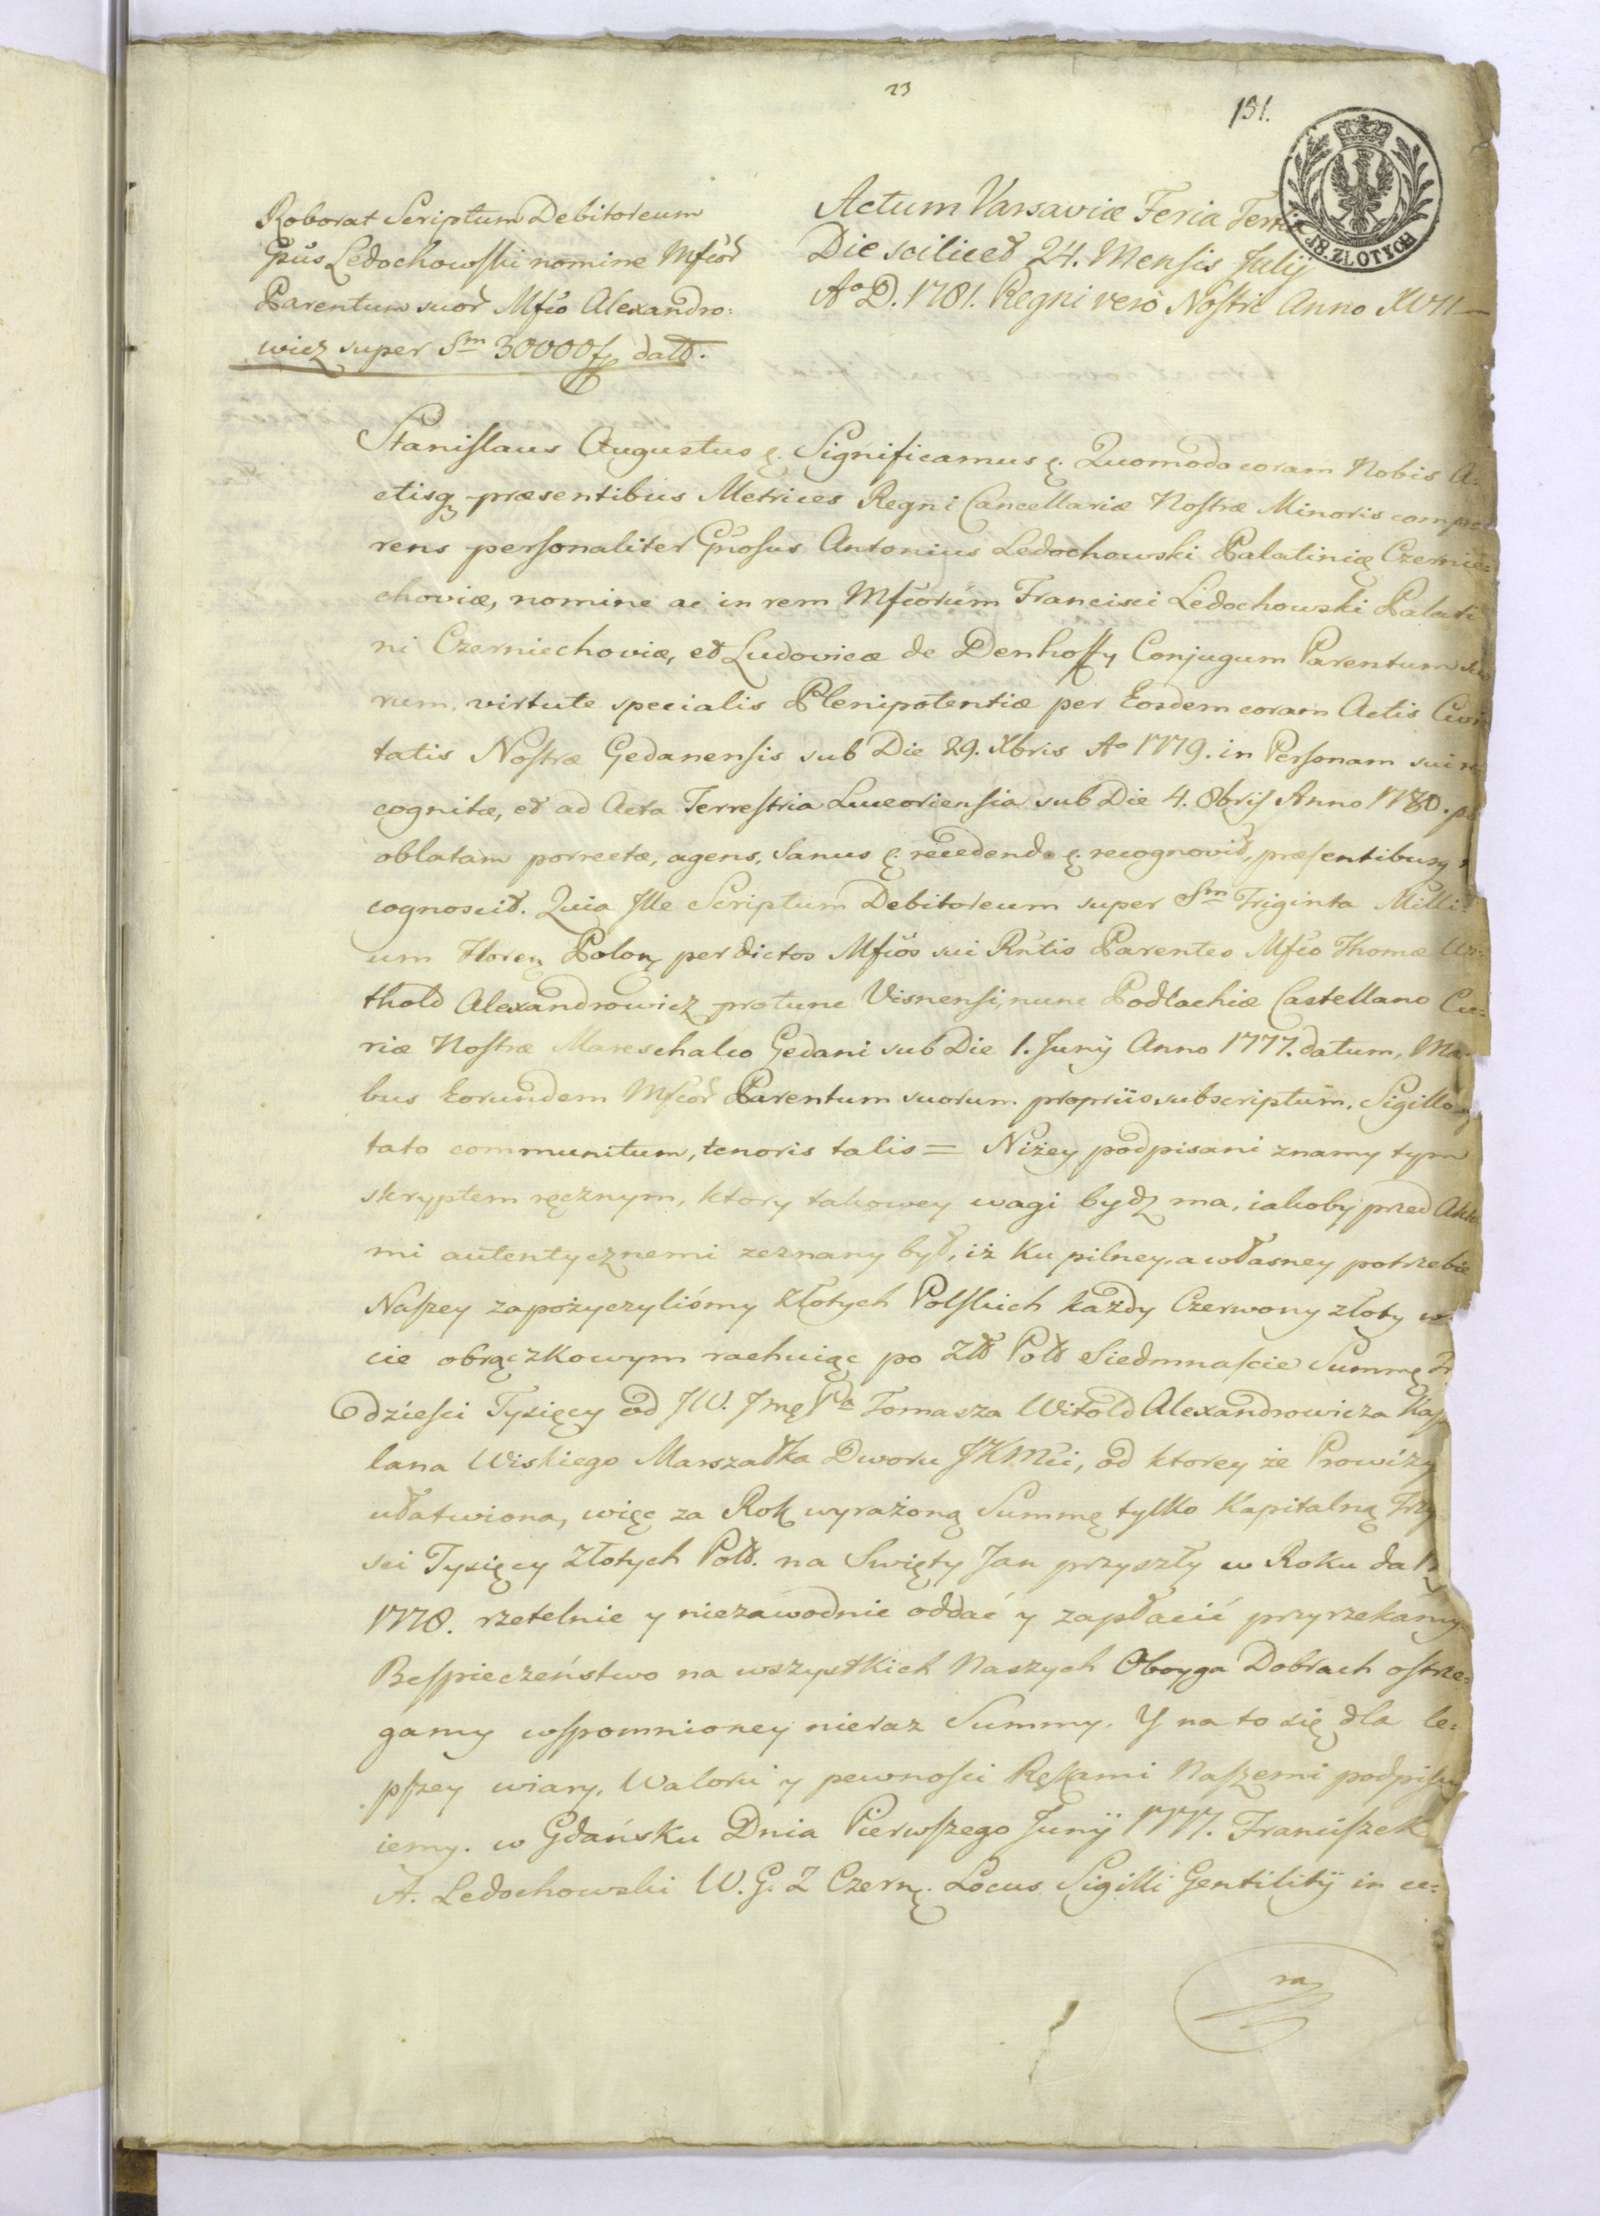 23
131.
18. ZŁOTYCH
Roborat Scriptum Debitoreum
Gnus Ledochowski nomine Mfcor
Parentum suor Mfco Alexandro:
wicz super Sm 30000 f dat.
Actum Varsaviæ Feria Tertia
Die scilicet 24. Mensis Julij
Ao D. 1781. Regni vero Nostri Anno XVII
Stanislaus Augustus &. Significamus &. Quomodo coram Nobis A:
ctisq præsentibus Metrices Regni Cancellariæ Nostræ Minoris compa
rens personaliter Gnosus Antonius Ledochowski Palatinię Czernie:
choviæ, nomine ac in rem Mfcorum Francisci Ledochowski Palati
ni Czerniechoviæ, et Ludovicæ de Denhoff Conjugum Parentum suo
rum, virtute specialis Plenipotentiæ per Eosdem coram Actis Civi
tatis Nostræ Gedanensis sub Die 29. Xbris Ao 1779. in Personam sui re
cognitæ, et ad Acta Terrestria Luceoriensia sub Die 4. 8bris Anno 1780. p
oblatam porrectæ, agens, Sanus &. recedendo &. recognovit, præsentibusq r
cognoscit. Quia Ille Scriptum Debitoreum super Sm Triginta Milli:
um Floren Polon per dictos Mfcos sui Rntis Parentes Mfco Thomæ Wi:
thold Alexandrowicz protunc Visnensi, nunc Podlachiæ Castellano Cu:
riæ Nostræ Mareschalco Gedani sub Die 1. Junij Anno 1777. datum, Ma
bus Eorundem Mfcor Parentum suorum propriis subscriptum, Sigillo
tato communitum, tenoris talis = Niżey podpisani znamy tym
skryptem ręcznym, ktory takowey wagi bydz ma, iakoby przed Akta
mi autentycznemi zeznany był, iż ku pilney, a własney potrzebie
Naszey zapożyczyliśmy Złotych Polskich każdy Czerwony złoty w
cie obrączkowym rachuiąc po Zł Pol Siedmnaście Summę Tr
dzieści Tysięcy od JW. Jmę Pa Tomasza Witold Alexandrowicza Kasz
lana Wiskiego Marszałka Dworu JKMci, od ktorey że Prowizya
ułatwiona, więc za Rok wyrażoną Summę tylko Kapitalną Trzy
ści Tysięcy Złotych Pol. na Swięty Jan przyszły w Roku da
1778. rzetelnie y niezawodnie oddać y zapłacić przyrzekamy
Bespieczeństwo na wszystkich Naszych Oboyga Dobrach ostrze:
gamy wspomnioney nieraz Summy. Y na to się dla le:
pszey wiary, Waloru y pewności Rękami Naszemi podpisu
iemy. w Gdańsku Dnia Pierwszego Junij 1777. Franciszek
A. Ledochowski W. G. Z Czern. Locus Sigilli Gentilitij in ce:
ra